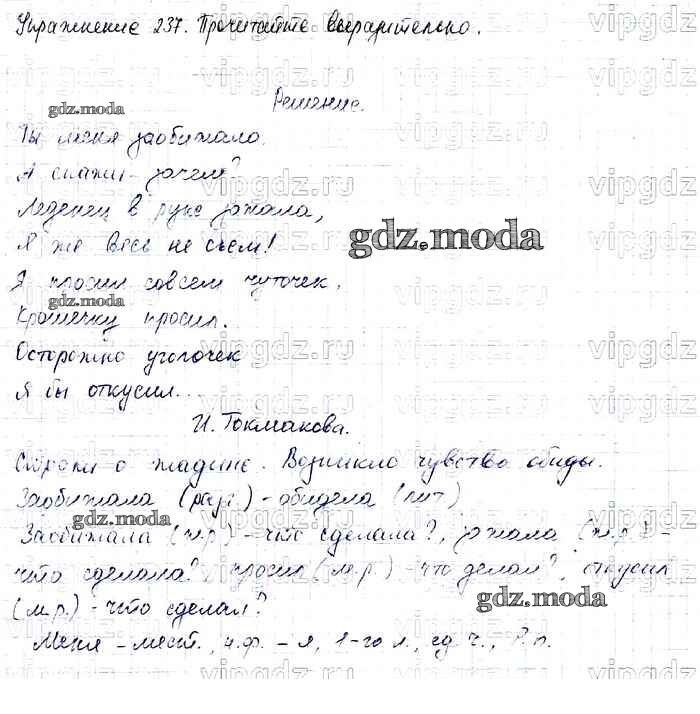 Упражнение 237. Прочитайте выразительно.
Решение.
Ты меня заобижала.
А скажи - зачем?
Леденец в руке зажала,
Я же весь не съем!
Я просил совсем чуточек,
Крошечку просил.
Осторожно уголочек
Я бы откусил...
И. Токмакова.
Строки о жадине. Возникло чувство обиды.
Заобижала (разг.) - обидела (лит)
Заобижала (ж.р.) - что сделала?, зажала (ж.р.) -
что сделала?, просил (м.р.) - что делал?, откусил
(м.р.) - что сделал?
Меня - мест., н.ф. - я, 1-го л., ед.ч., Р.п.
gdz.moda
gdz.moda
gdz.moda
gdz.moda
gdz.moda
vipgdz.ru